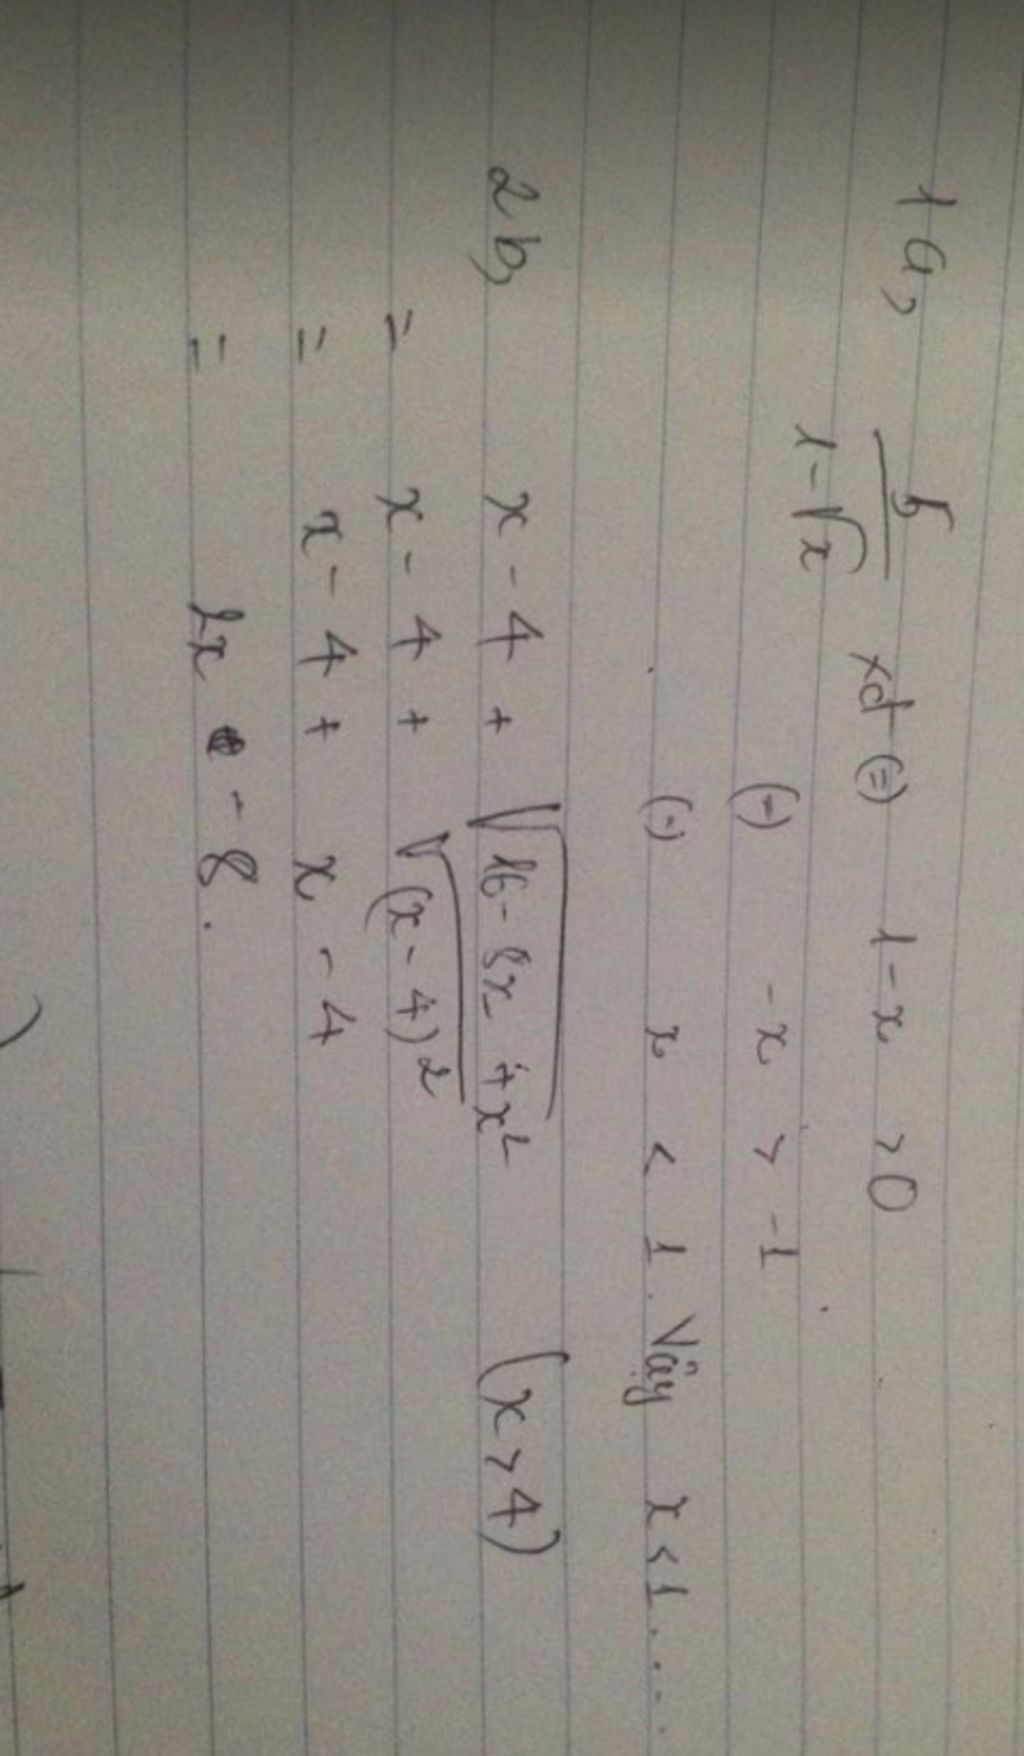 1a, 5/(1-√x) xđ (=) 1-x >0
(-) -x > -1
(-) x < 1. Vậy x<1....
2b, x - 4 + √(16-8x+x²) (x>4)
= x - 4 + √(x-4)²
= x - 4 + x - 4
= 2x - 8.